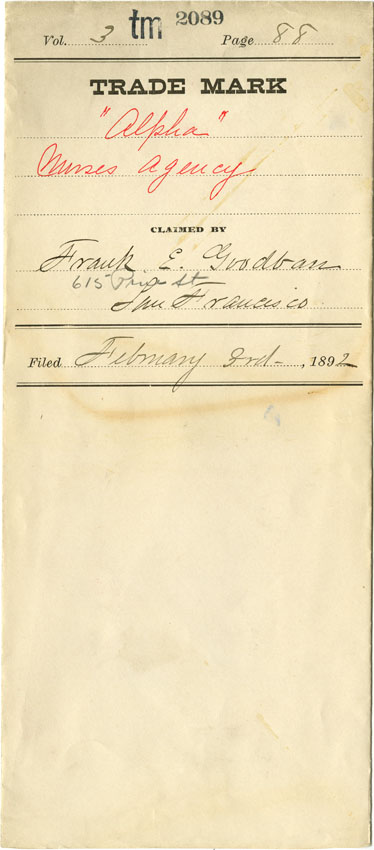 Vol. 3 tm 2089 Page 88
TRADE MARK
"Alpha"
Nurses Agency
CLAIMED BY
Frank E. Goodban
615 st
San Francisco
Filed February 3rd , 1892